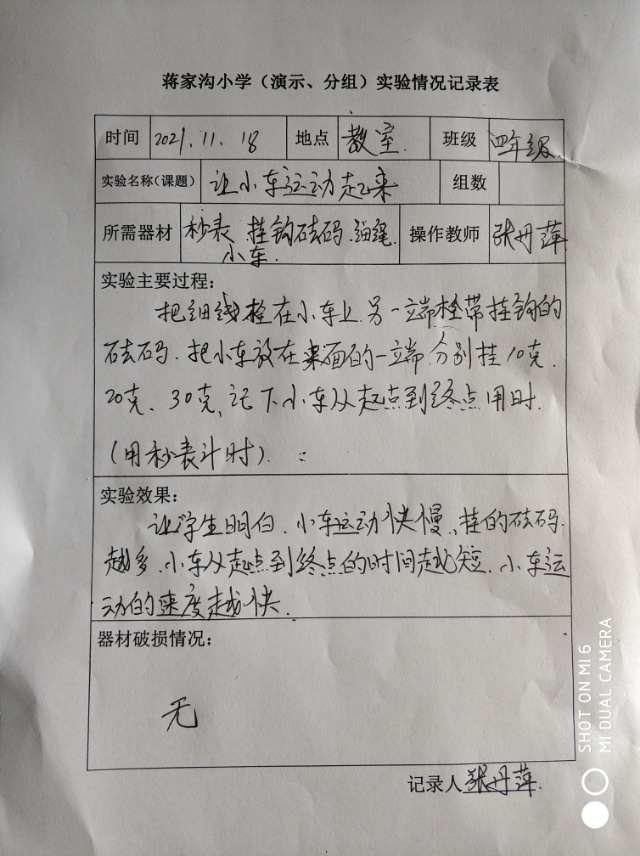 蒋家沟小学（演示、分组）实验情况记录表
时间 2021.11.18 地点 教室. 班级 四年级.
实验名称(课题) 让小车运动起来 组数
所需器材 秒表 挂钩砝码.细绳. 操作教师 张丹萍
小车.
实验主要过程：
把细线栓在小车上.另一端栓带挂钩的
砝码.把小车放在桌面的一端 分别挂10克.
20克、30克,记下小车从起点到终点用时.
(用秒表计时).
实验效果：
让学生明白.小车运动快慢,挂的砝码.
越多.小车从起点到终点的时间越短.小车运
动的速度越快.
器材破损情况：
无
记录人 张丹萍.
SHOT ON MI 6
MI DUAL CAMERA